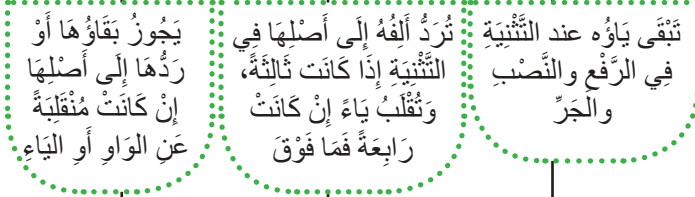 تَبْقَى يَاؤُه عند التَّثْنِيَةِ
فِي الرَّفْعِ والنَّصْبِ
والْجَرِّ
تُرَدُّ أَلِفُهُ إِلَى أَصْلِهَا فِي
التَّثْنِيَةِ إِذَا كَانَت ثَالِثَةً،
وَتُقْلَبُ يَاءً إِنْ كَانَتْ
رَابِعَةً فَمَا فَوْقَ
يَجُوزُ بَقَاؤُهَا أَوْ
رَدُّهَا إِلَى أَصْلِهَا
إِنْ كَانَتْ مُنْقَلِبَةً
عَنِ الوَاوِ أَوِ اليَاءِ